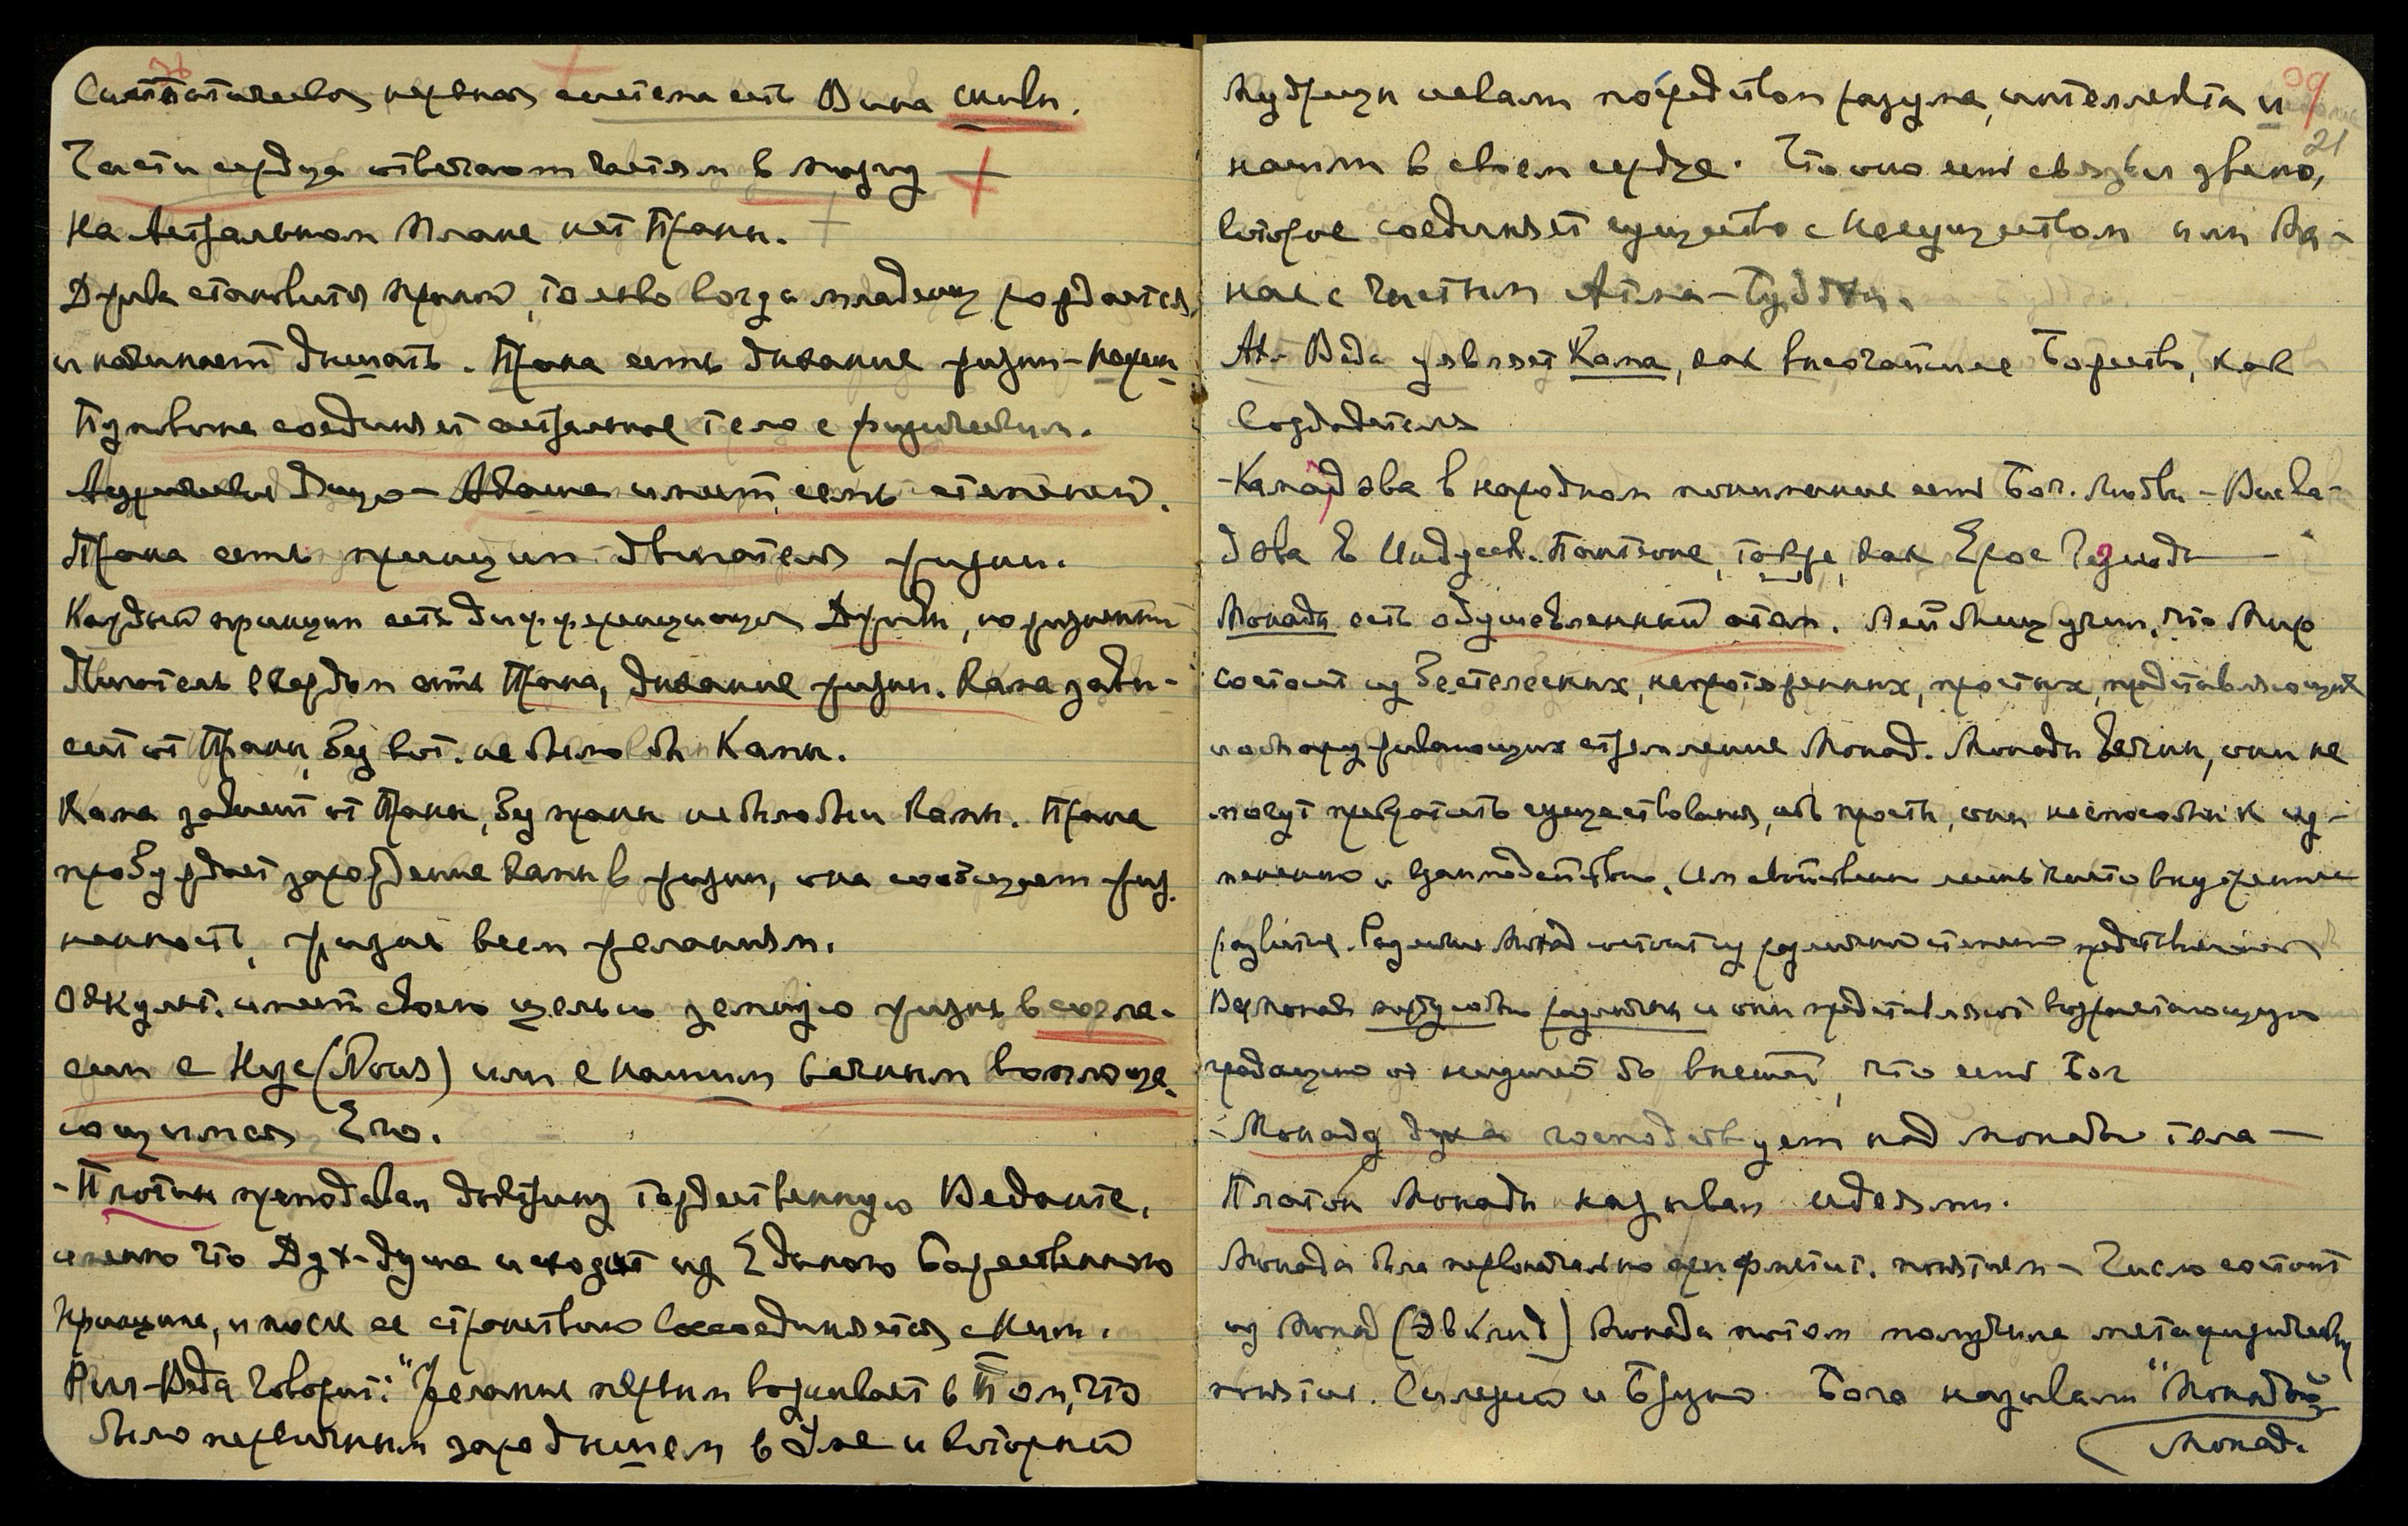 Симпатическая нервная система есть Вина Шивы.
Части сердца отвечают частям в мозгу —
На Астральном Плане нет Праны.
Джива становится праной, только когда младенец рождается
и начинает дышать. Прана есть дыхание жизни – Нефеш
Пуповина соединяет астральное тело с физическим.
Дыхо – Адоша имеет семь степеней.
Прана есть принцип двигателя жизни.
Каждый принцип есть дифференциация Дживы, но жизненный
Двигатель каждого есть Прана, дыхание жизни. Кама зави-
сит от Праны, без кот. не было бы Камы.
Кама зависит от Праны, без праны не было бы Камы. Прана
пробуждает зарождение Камы в жизни, она сообщает жиз.
ненность, жизнь всем желаниям.
Оккульт. имеет своею целью земную жизнь в согла-
сии с Нус (Nous) или с нашим вечным воплоща-
ющимся Эго.
- Плотин преподавал доктрину тождественную Веданте,
именно что Дух-душа исходит из Единого Божественного
Принципа, и после ее странствию воссоединяется с Ним.
Риг-Веда говорит: "Желание первым возникает в Том, что
было первичным зародышем в Уме и который
39
21
Мудрецы искали посредством разума, интеллекта и
нашли в своем сердце. Что оно есть связь звено,
которое соединяет существо с Несуществом или Ма-
нас с чистым Атма-Буддхи.
Ат.- Веда являет Кама, как высочайшее Божество, как
Создателя
- Кама дэва в народном понимании есть Бог. Любви – Висва-
дэва в Индусск. Пантеоне, тоже, как Эрос Гезиода —
Монада есть одушевленный атом. Лейбниц учил, что Мир
состоит из бестелесных, непротяженных, простых, представляющих
и обнаруживающих стремление Монад. Монады вечны, они не
могут прекратить существования, ибо просты, они неспособны к из-
менению и взаимодействию. Им свойственны лишь чисто внутреннее
развитие. Различие Монад состоит из различной степени представления
Все монады различны и они представляют возрастающую
градацию от низшей до высшей, что есть Бог
- Монада духа господствует над монадою тела —
Платон Монады называл идеями.
Монада была первоначально арифметич. понятием – Число состоит
из Монад (Эвклид) Монада потом получила метафизическ
понятие. Силезий и Бруно Бога называли "Монадой
Монад.